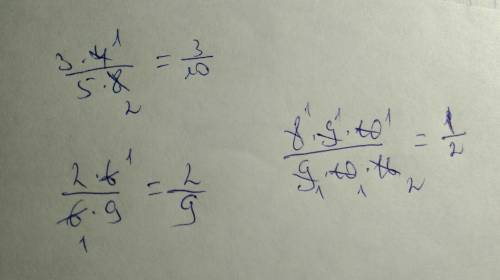 3·4¹/5·8₂ = 3/10
2·6¹/6₁·9 = 2/9
8¹·9¹·10¹/9₁·10₁·16₂ = 1/2